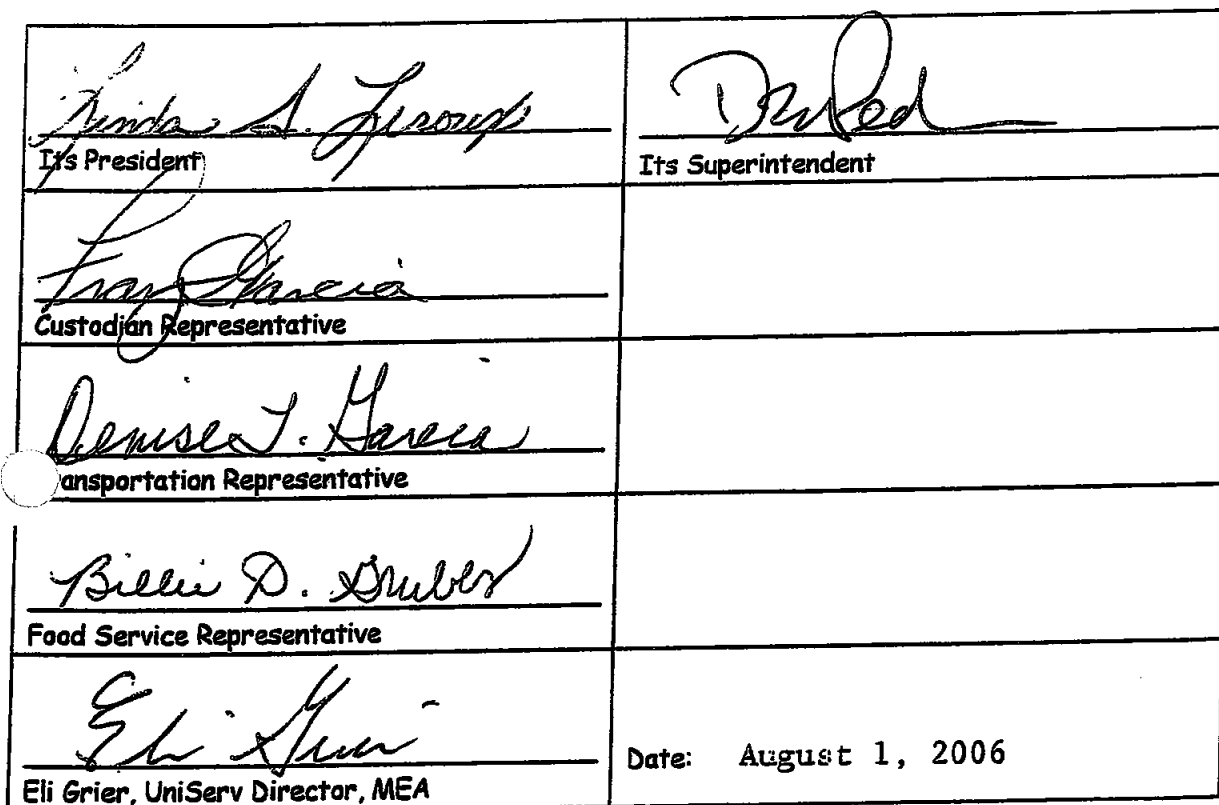 Linda S.
Its President
Its Superintendent
Garcia
Custodian Representative
Denise T. Garcia
ansportation Representative
Billie D. Gruber
Food Service Representative
Eli Grier
Eli Grier, UniServ Director, MEA
Date: August 1, 2006